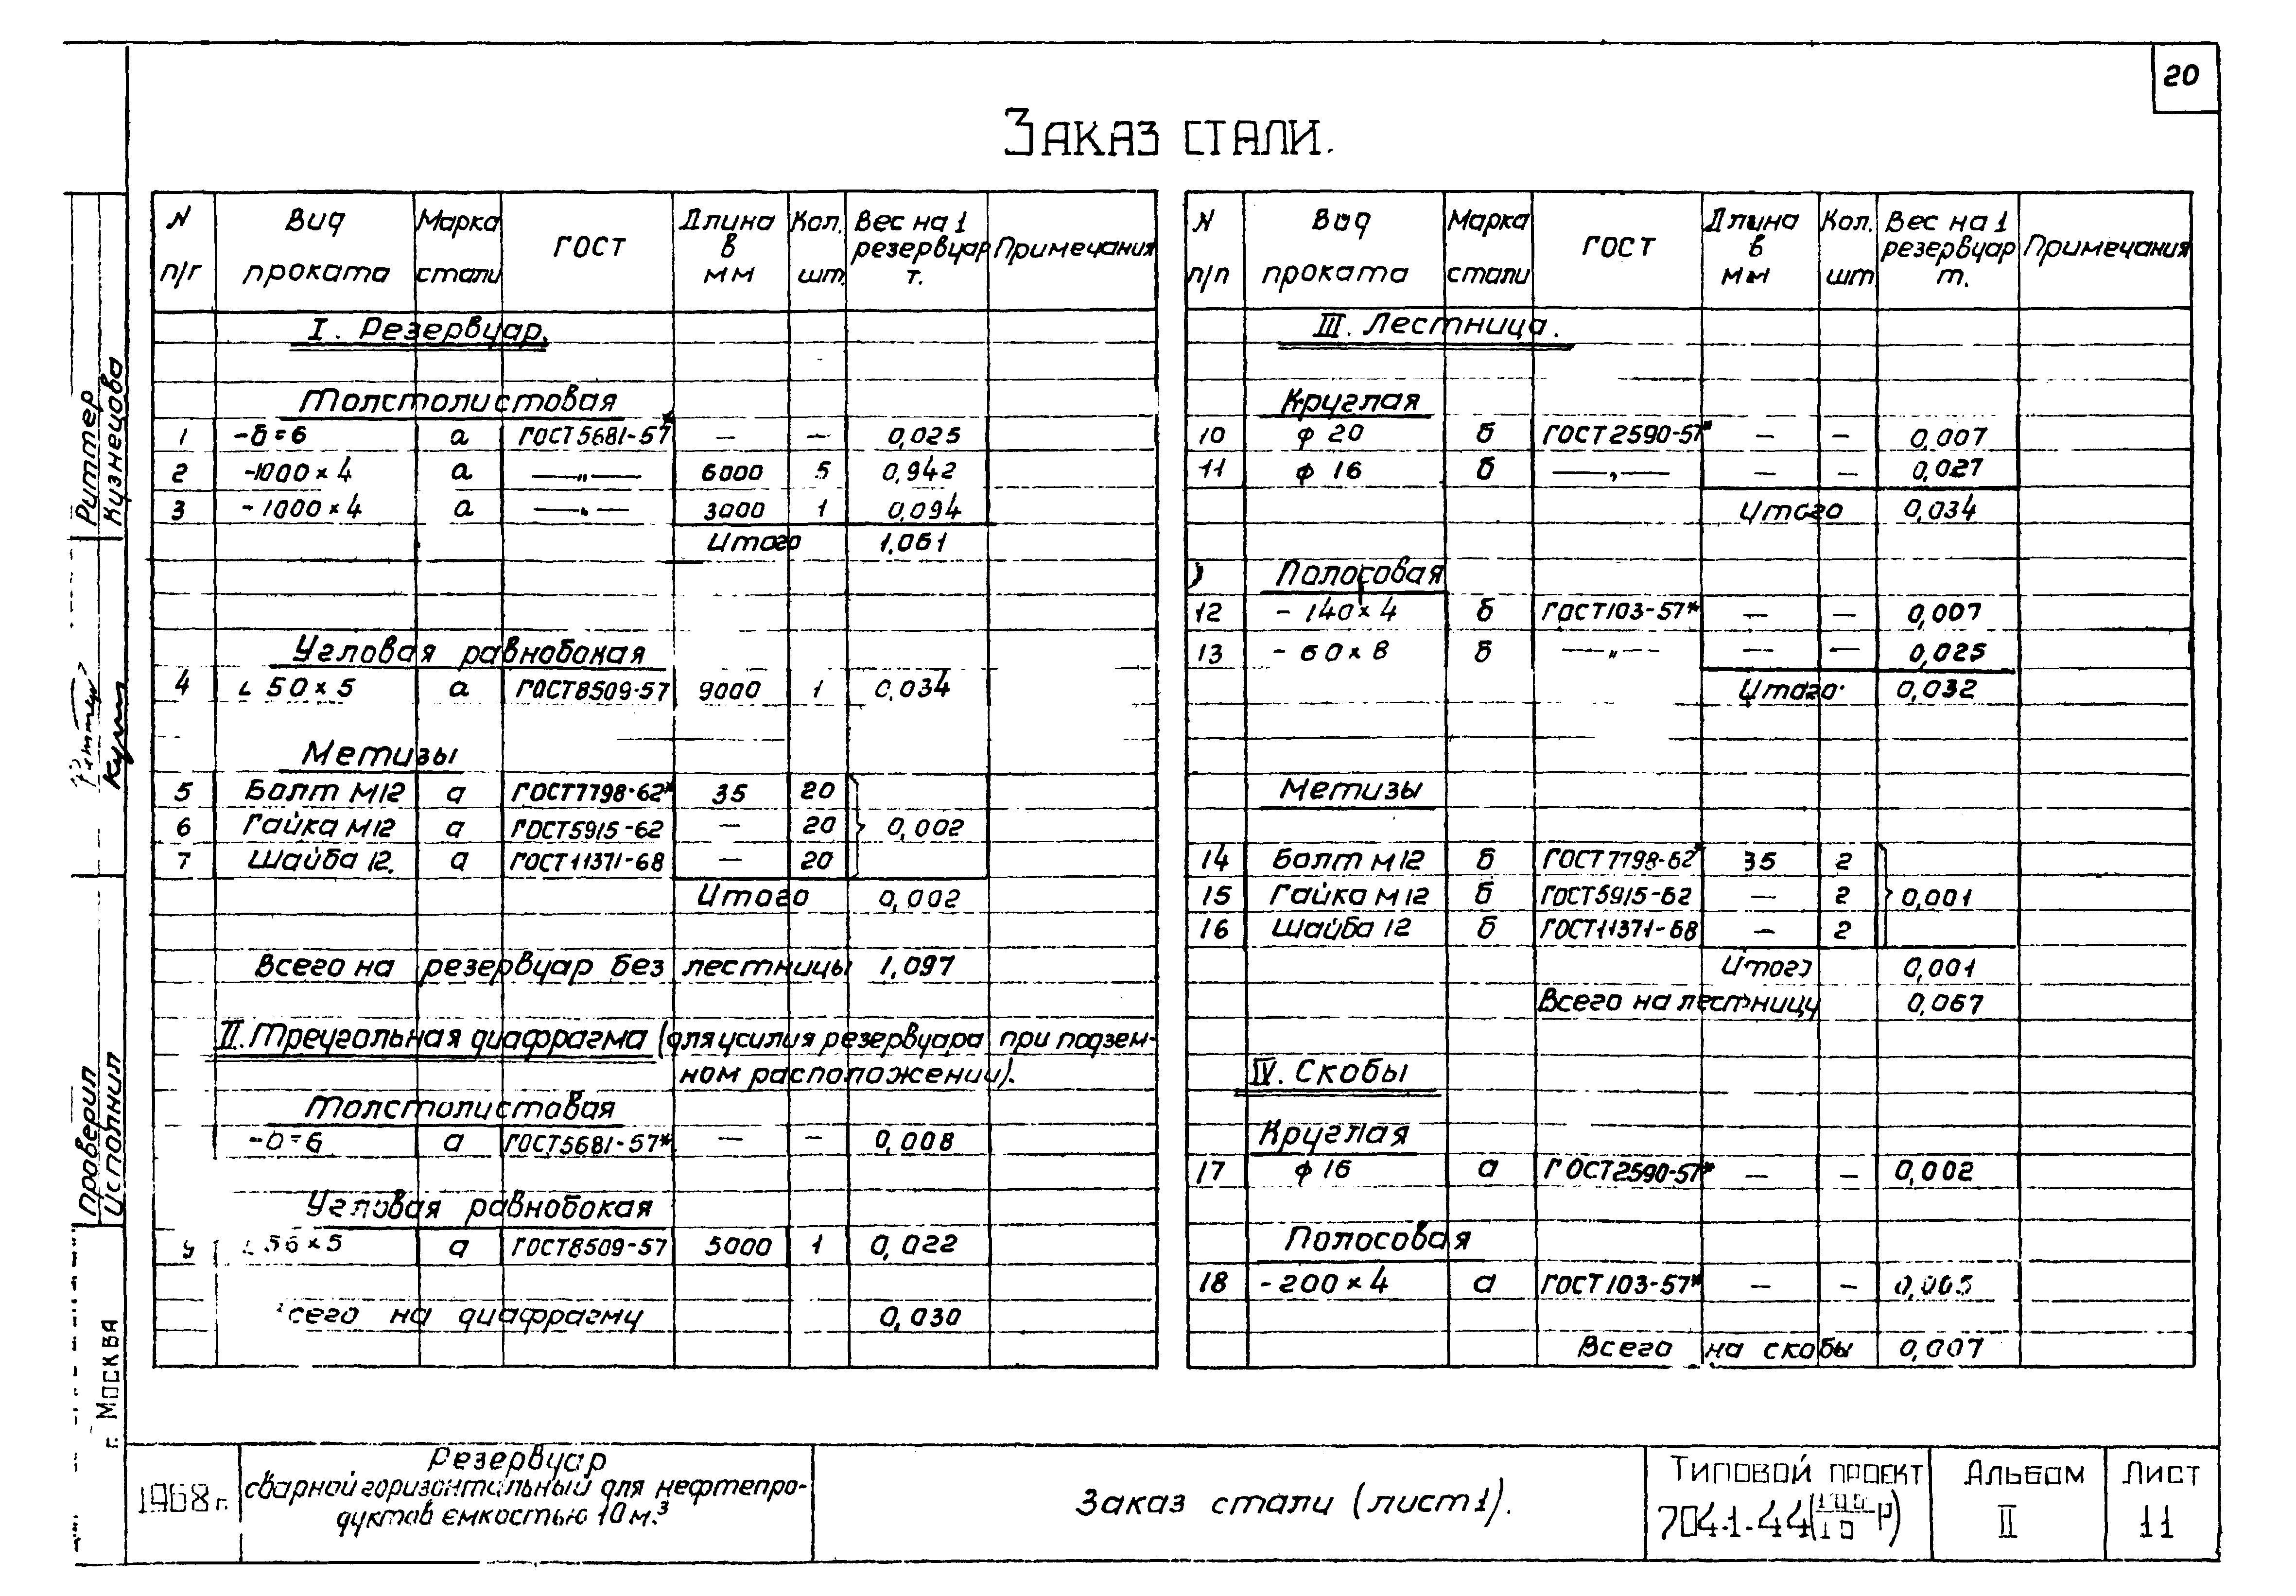 20
Заказ стали.
N п/г Вид проката Марка стали ГОСТ Длина в мм Кол. шт. Вес на 1 резервуар т. Примечания
I. Резервуар.
Толстолистовая
1 -δ=6 а ГОСТ5681-57* — — 0,025
2 -1000×4 а —„— 6000 5 0,942
3 -1000×4 а —„— 3000 1 0,094
Итого 1,061
Угловая равнобокая
4 L 50×5 а ГОСТ8509-57 9000 1 0,034
Метизы
5 Болт М12 а ГОСТ7798-62* 35 20
6 Гайка М12 а ГОСТ5915-62 — 20 0,002
7 Шайба 12. а ГОСТ11371-68 — 20
Итого 0,002
Всего на резервуар без лестницы 1,097
II. Треугольная диафрагма (для усилия резервуара при подзем-
ном расположении).
Толстолистовая
-δ=6 а ГОСТ5681-57* — — 0,008
Угловая равнобокая
9 L 56×5 а ГОСТ8509-57 5000 1 0,022
сего на диафрагму 0,030
N п/п Вид проката Марка стали ГОСТ Длина в мм Кол. шт Вес на 1 резервуар т. Примечания
III. Лестница.
Круглая
10 ф 20 б ГОСТ2590-57* — — 0,007
11 ф 16 б —„— — — 0,027
Итого 0,034
Полосовая
12 - 140×4 б ГОСТ103-57* — — 0,007
13 - 60×8 б —„— — — 0,025
Итого 0,032
Метизы
14 Болт М12 б ГОСТ7798-62* 35 2
15 Гайка М12 б ГОСТ5915-62 — 2 0,001
16 Шайба 12 б ГОСТ11371-68 — 2
Итого 0,001
Всего на лестницу 0,067
IV. Скобы
Круглая
17 ф 16 а ГОСТ2590-57* — — 0,002
Полосовая
18 -200×4 а ГОСТ103-57* — — 0,005
Всего на скобы 0,007
Риттер
Кузнецова
Проверил
Исполнил
г. Москва
1968 г.
Резервуар
сварной горизонтальный для нефтепро-
дуктов емкостью 10 м.³
Заказ стали (лист 1).
Типовой проект
704-1-44(100/10 р)
Альбом
II
Лист
11